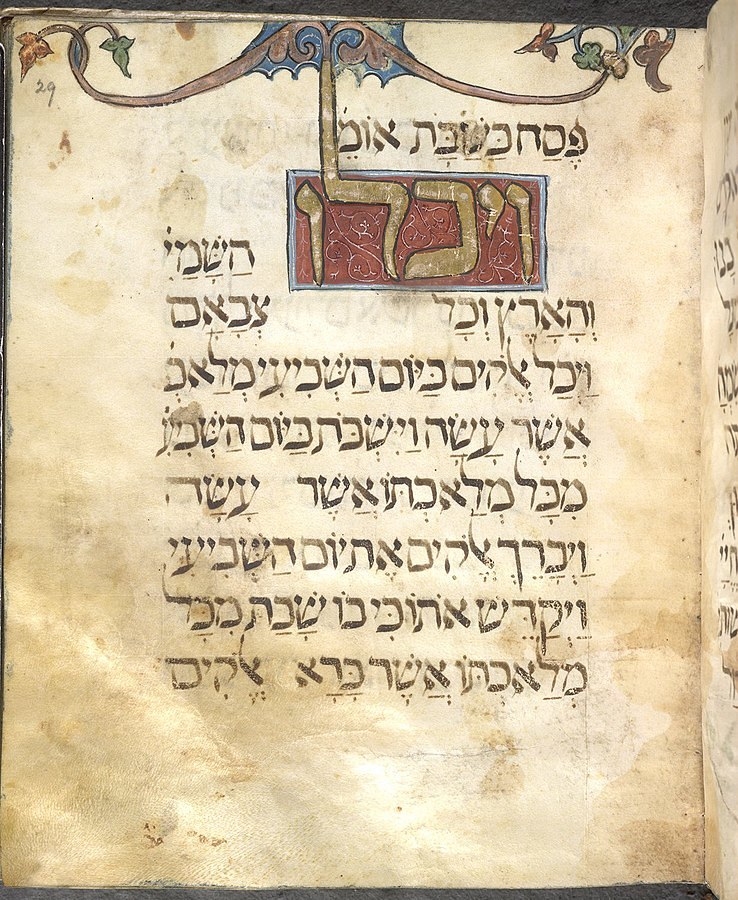 29
פֶסַח בְשַׁבָּת אוֹמֵ
וַיְכֻלּוּ
הַשָּׁמַיִ
וְהָאָרֶץ וְכָל צְבָאָם
וַיְכַל אֱלֹקִים בַּיּוֹם הַשְּׁבִיעִי מְלַאכְ
אֲשֶׁר עָשָׂה וַיִּשְׁבֹּת בַּיּוֹם הַשְּׁבִיעִ
מִכָּל מְלַאכְתּוֹ אֲשֶׁר עָשָׂה
וַיְבָרֶךְ אֱלֹקִים אֶת יוֹם הַשְּׁבִיעִי
וַיְקַדֵּשׁ אֹתוֹ כִּי בוֹ שָׁבַת מִכָּל
מְלַאכְתּוֹ אֲשֶׁר בָּרָא אֱלֹקִים